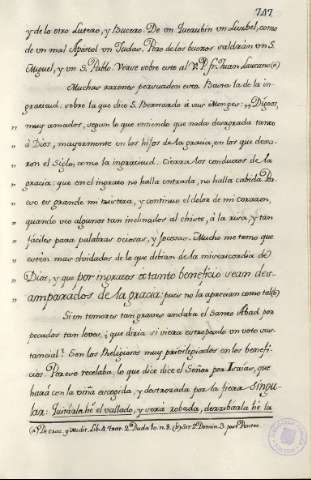 747
y de lo otro Lutero, y Bucero. De un Serafin un Luzbel, como
de un mal Apostol un Judas. Pero de los buenos valdrán un S.
Miguel, y un S. Pablo. Vease sobre esto al V. P. fr. Juan
Muchas razones persuaden esto. Basta la de la in-
gratitud, sobre la que dice S. Bernardo à sus Monges: „ Digoos,
„ muy amados, segun lo que entiendo que nada desagrada tanto
„ à Dios, mayormente en los hijos de la gracia, en los que dexa-
„ ron el Siglo, como la ingratitud. Cierra los conductos de la
„ gracia: que en el ingrato no halla entrada, no halla cabida. Por
„ eso es grande mi tristeza, y continuo el dolor de mi corazon,
„ quando veo algunos tan inclinados al chiste, à la risa, y tan
„ fáciles para palabras ociosas, y jocosas. Mucho me temo que
„ estén mas olvidados de lo que debian de la misericordia de
„ Dios, y que por ingratos a tanto beneficio sean des-
„ amparados de la gracia: pues no la aprecian como tal
Si en temores tan graves andaba el Santo Abad por
pecados tan leves, ¿que diria si viera estropeado un voto sus-
tancial? Son los Religiosos muy privilegiados en los benefi-
cios. Por eso recelaba, lo que dice el Señor por Isaias, que
hará con la viña escogida, y destrozada por la fiera singu-
lar: Quitarla hé el vallado, y será robada, derribarla hé la